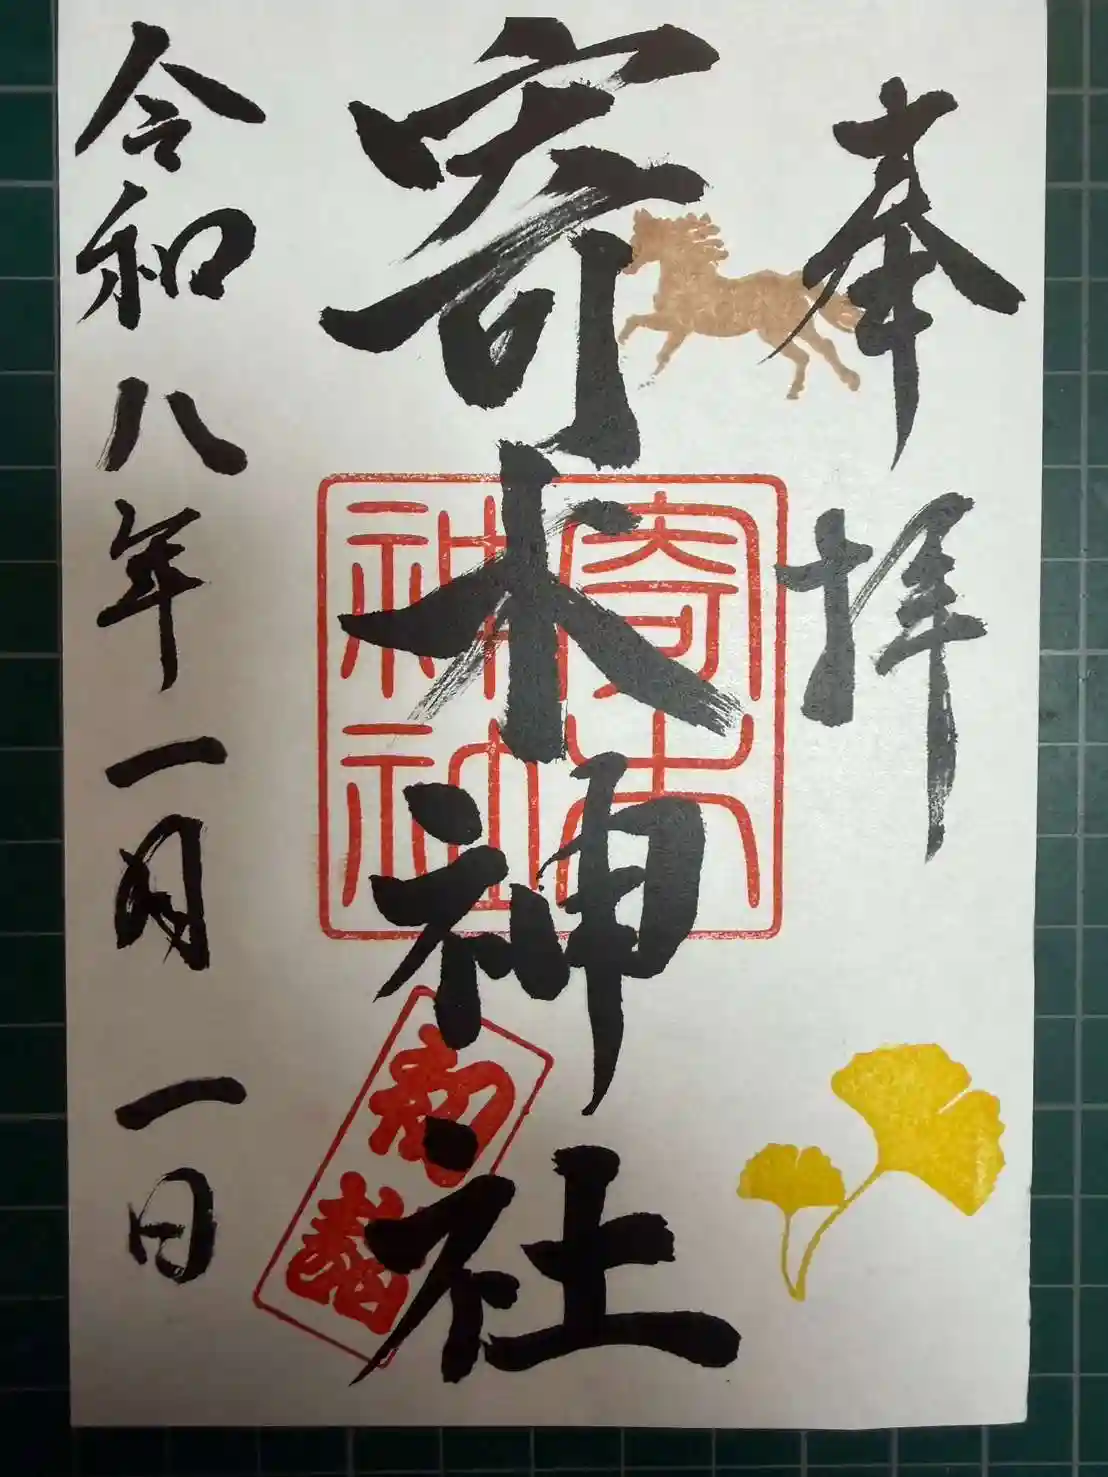 奉拝
寄木神社
令和八年一月一日
寄木
神社
初詣